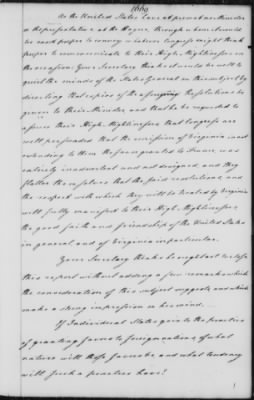 1669
As the United States have at present no Minister
or Representative at the Hague, through whom it would
be most proper to convey in future Congress might think
proper to communicate to their High Mightinesses on
the occasion; Your Secretary thinks it would be well to
quiet the minds of the States General on the subject by
directing that copies of the a Resolutions be
given to their Minister, and that he be requested to
assure their High Mightinesses, that Congress are
well persuaded that the omission of Virginia in not
extending to them the favors granted to France, was
entirely inadvertent and not designed, and they
flatter themselves that the said resolutions, and
the respect with which they will be treated by Virginia
will fully manifest to their High Mightinesses,
the good faith and friendship of the United States
in general and of Virginia in particular.
Your Secretary thinks he ought not to close
this report without adding a few remarks which
the consideration of this subject suggests and which
make a strong impression on his mind.
If Individual States go into the practice
of granting favors to foreign nations, of what
nature will those favors be and what tendency
will such a practice have?